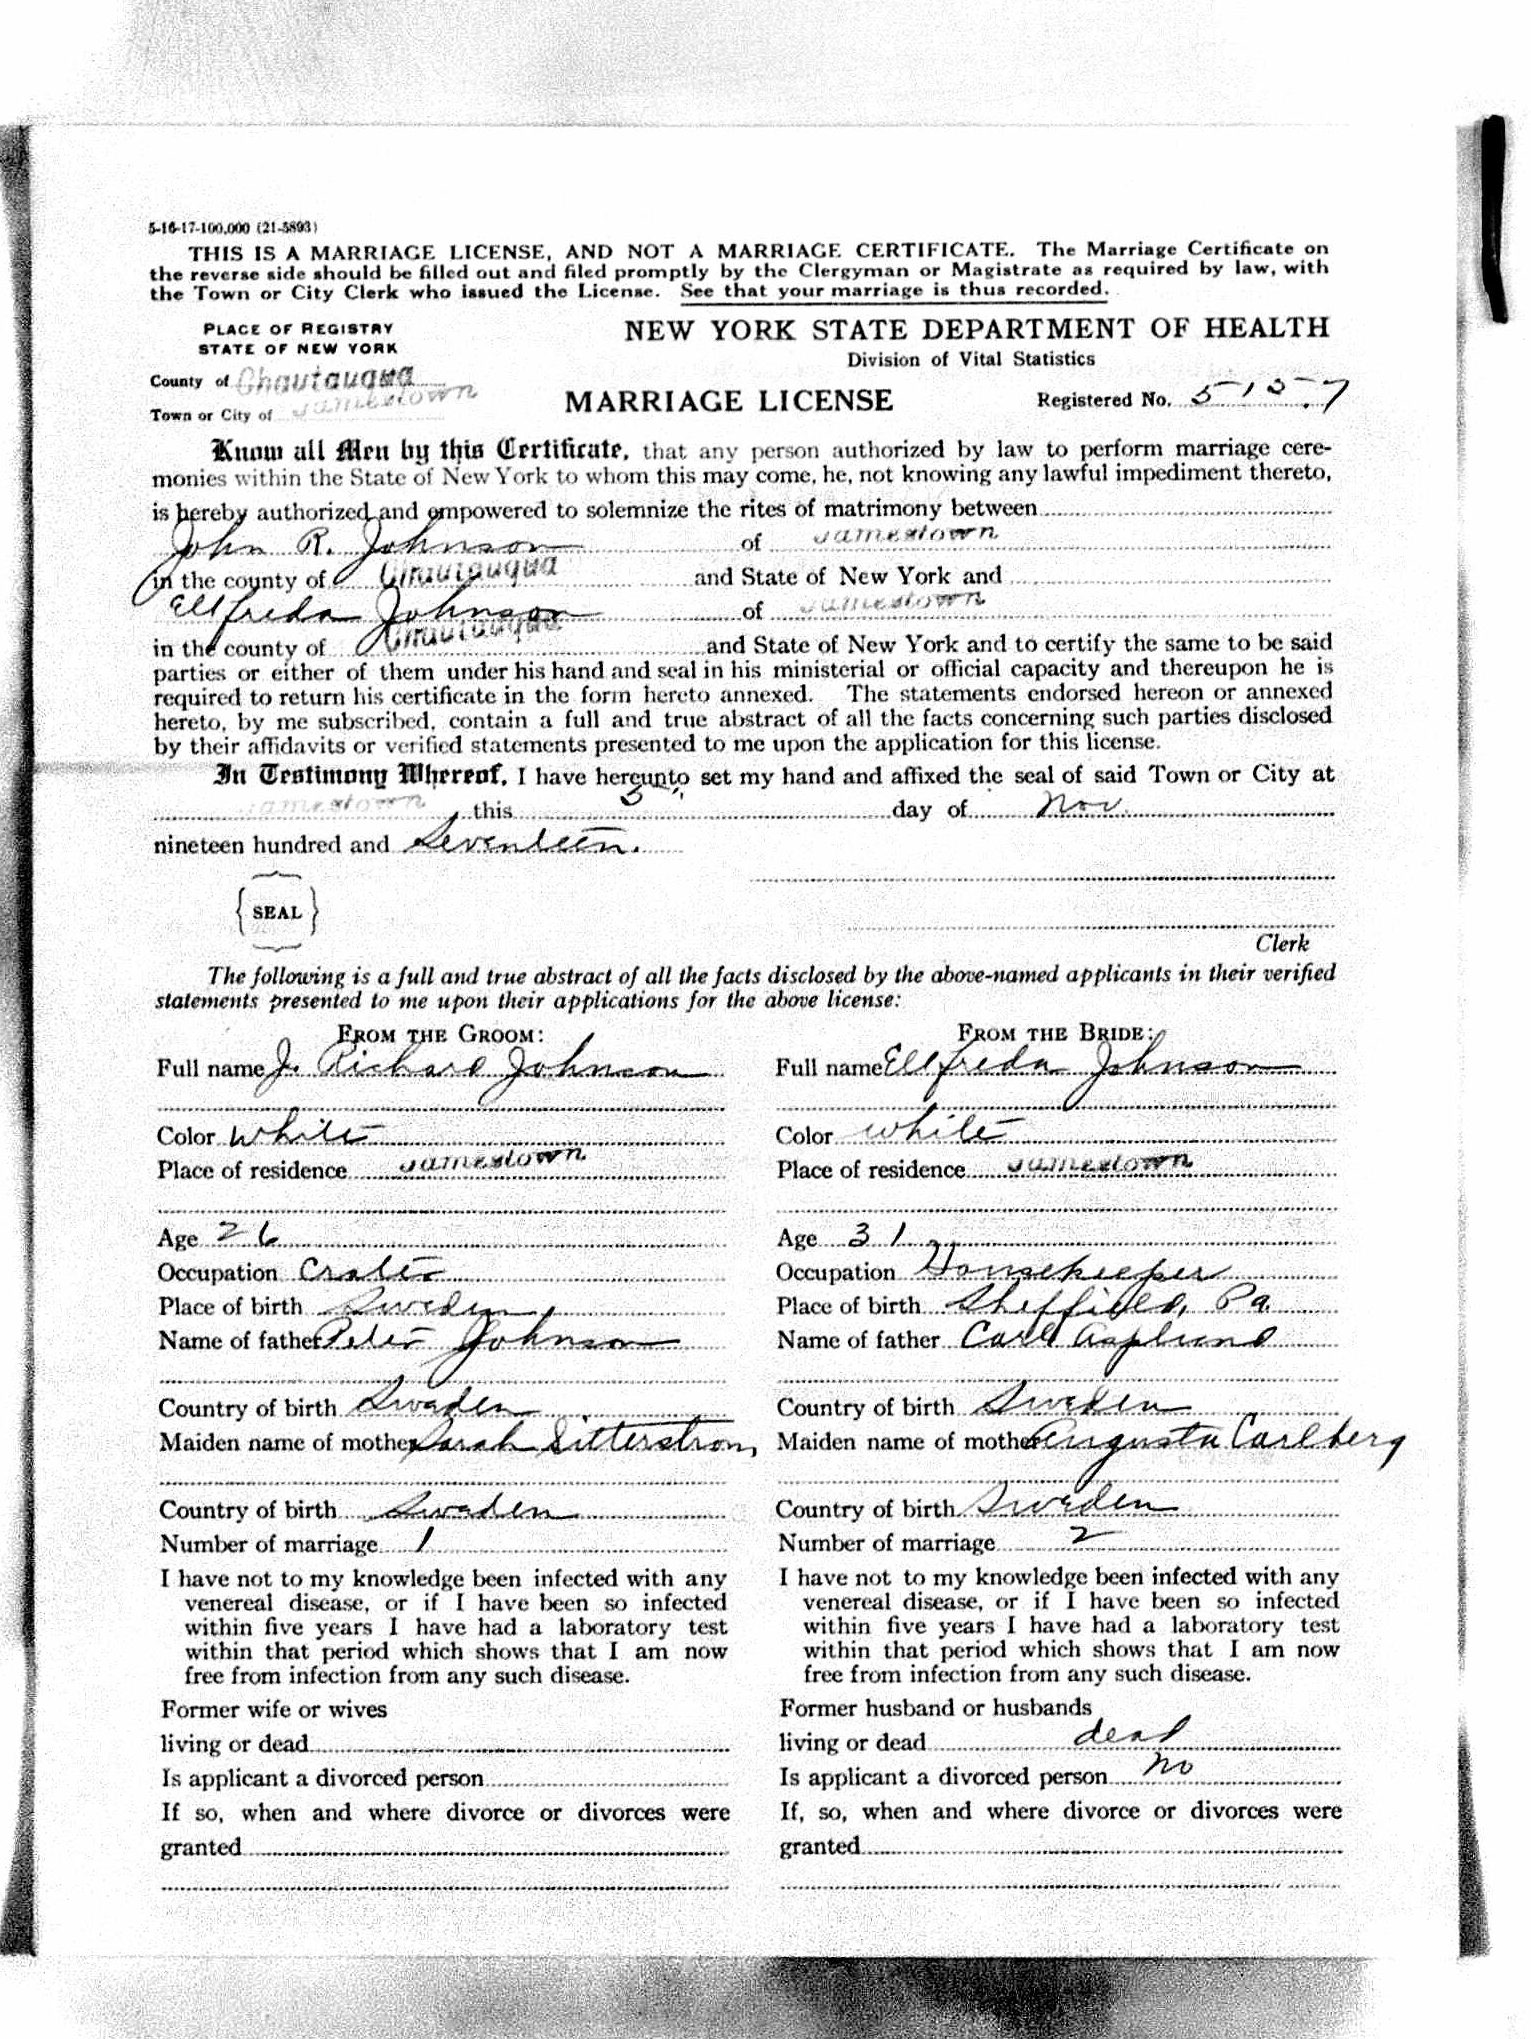 5-16-17-100,000 (21-5893)
THIS IS A MARRIAGE LICENSE, AND NOT A MARRIAGE CERTIFICATE. The Marriage Certificate on
the reverse side should be filled out and filed promptly by the Clergyman or Magistrate as required by law, with
the Town or City Clerk who issued the License. See that your marriage is thus recorded.
PLACE OF REGISTRY
STATE OF NEW YORK
County of Chautauqua
Town or City of Jamestown
NEW YORK STATE DEPARTMENT OF HEALTH
Division of Vital Statistics
MARRIAGE LICENSE
Registered No. 5157
Know all Men by this Certificate, that any person authorized by law to perform marriage cere-
monies within the State of New York to whom this may come, he, not knowing any lawful impediment thereto,
is hereby authorized and empowered to solemnize the rites of matrimony between
John R. Johnson of Jamestown
in the county of Chautauqua and State of New York and
Ellfreda Johnson of Jamestown
in the county of Chautauqua and State of New York and to certify the same to be said
parties or either of them under his hand and seal in his ministerial or official capacity and thereupon he is
required to return his certificate in the form hereto annexed. The statements endorsed hereon or annexed
hereto, by me subscribed, contain a full and true abstract of all the facts concerning such parties disclosed
by their affidavits or verified statements presented to me upon the application for this license.
In Testimony Whereof, I have hereunto set my hand and affixed the seal of said Town or City at
Jamestown this 5" day of Nov.
nineteen hundred and Seventeen.
SEAL
Clerk
The following is a full and true abstract of all the facts disclosed by the above-named applicants in their verified
statements presented to me upon their applications for the above license:
FROM THE GROOM:
Full name J. Richard Johnson
Color White
Place of residence Jamestown
Age 26
Occupation Crater
Place of birth Sweden
Name of father Peter Johnson
Country of birth Sweden
Maiden name of mother Sarah Sitterstrom
Country of birth Sweden
Number of marriage 1
I have not to my knowledge been infected with any
venereal disease, or if I have been so infected
within five years I have had a laboratory test
within that period which shows that I am now
free from infection from any such disease.
Former wife or wives
living or dead
Is applicant a divorced person
If so, when and where divorce or divorces were
granted
FROM THE BRIDE:
Full name Ellfreda Johnson
Color White
Place of residence Jamestown
Age 31
Occupation Housekeeper
Place of birth Sheffield, Pa.
Name of father Carl Asplund
Country of birth Sweden
Maiden name of mother Augusta Carlberg
Country of birth Sweden
Number of marriage 2
I have not to my knowledge been infected with any
venereal disease, or if I have been so infected
within five years I have had a laboratory test
within that period which shows that I am now
free from infection from any such disease.
Former husband or husbands
living or dead dead
Is applicant a divorced person No
If, so, when and where divorce or divorces were
granted